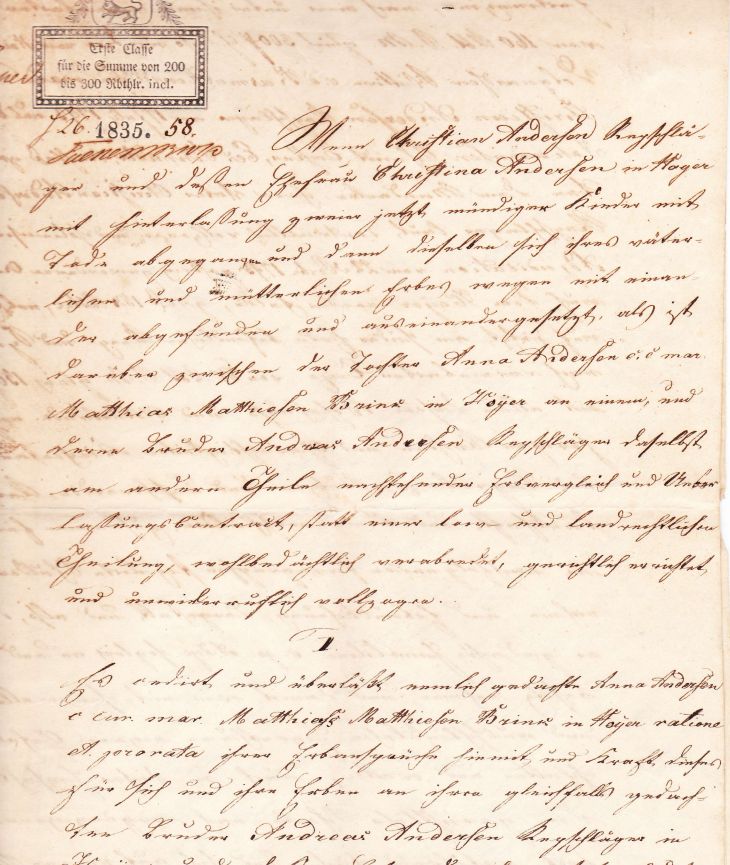 Erste Classe
für die Summe von 200
bis 300 Rbthlr. incl.
26. 1835. 58.
Wenn Christian Andersen Repschlä-
ger und deßen Ehefrau Christina Andersen in Hoyer
mit Hinterlassung zweier jetzt mündiger Kinder mit
Tode abgegangen und dann dieselben sich ihres väter-
lichen und mütterlichen Erbes wegen mit einan-
der abgefunden und auseinandergesetzt, als ist
darüber zwischen der Tochter Anna Andersen c. c. mar.
Matthias Matthiesen Brink in Hoyer an einem, und
deren Bruder Andreas Andersen Repschläger daselbst
am andern Theile nachstehender Erbvergleich und Ueber
lassungscontract, statt einer low- und landrechtlichen
Theilung, wohlbedächtlich verabredet, gerichtlich errichtet
und unwiderruflich vollzogen.
1.
Es cedirt und überläßt nemlich gedachte Anna Andersen
c cur. mar. Matthias Matthiesen Brink in Hoyer ratione
et prorata ihrer Erbansprüche hiemit und Kraft dieses
für sich und ihre Erben an ihren gleichfalls gedach-
ten Bruder Andreas Andersen Repschläger in